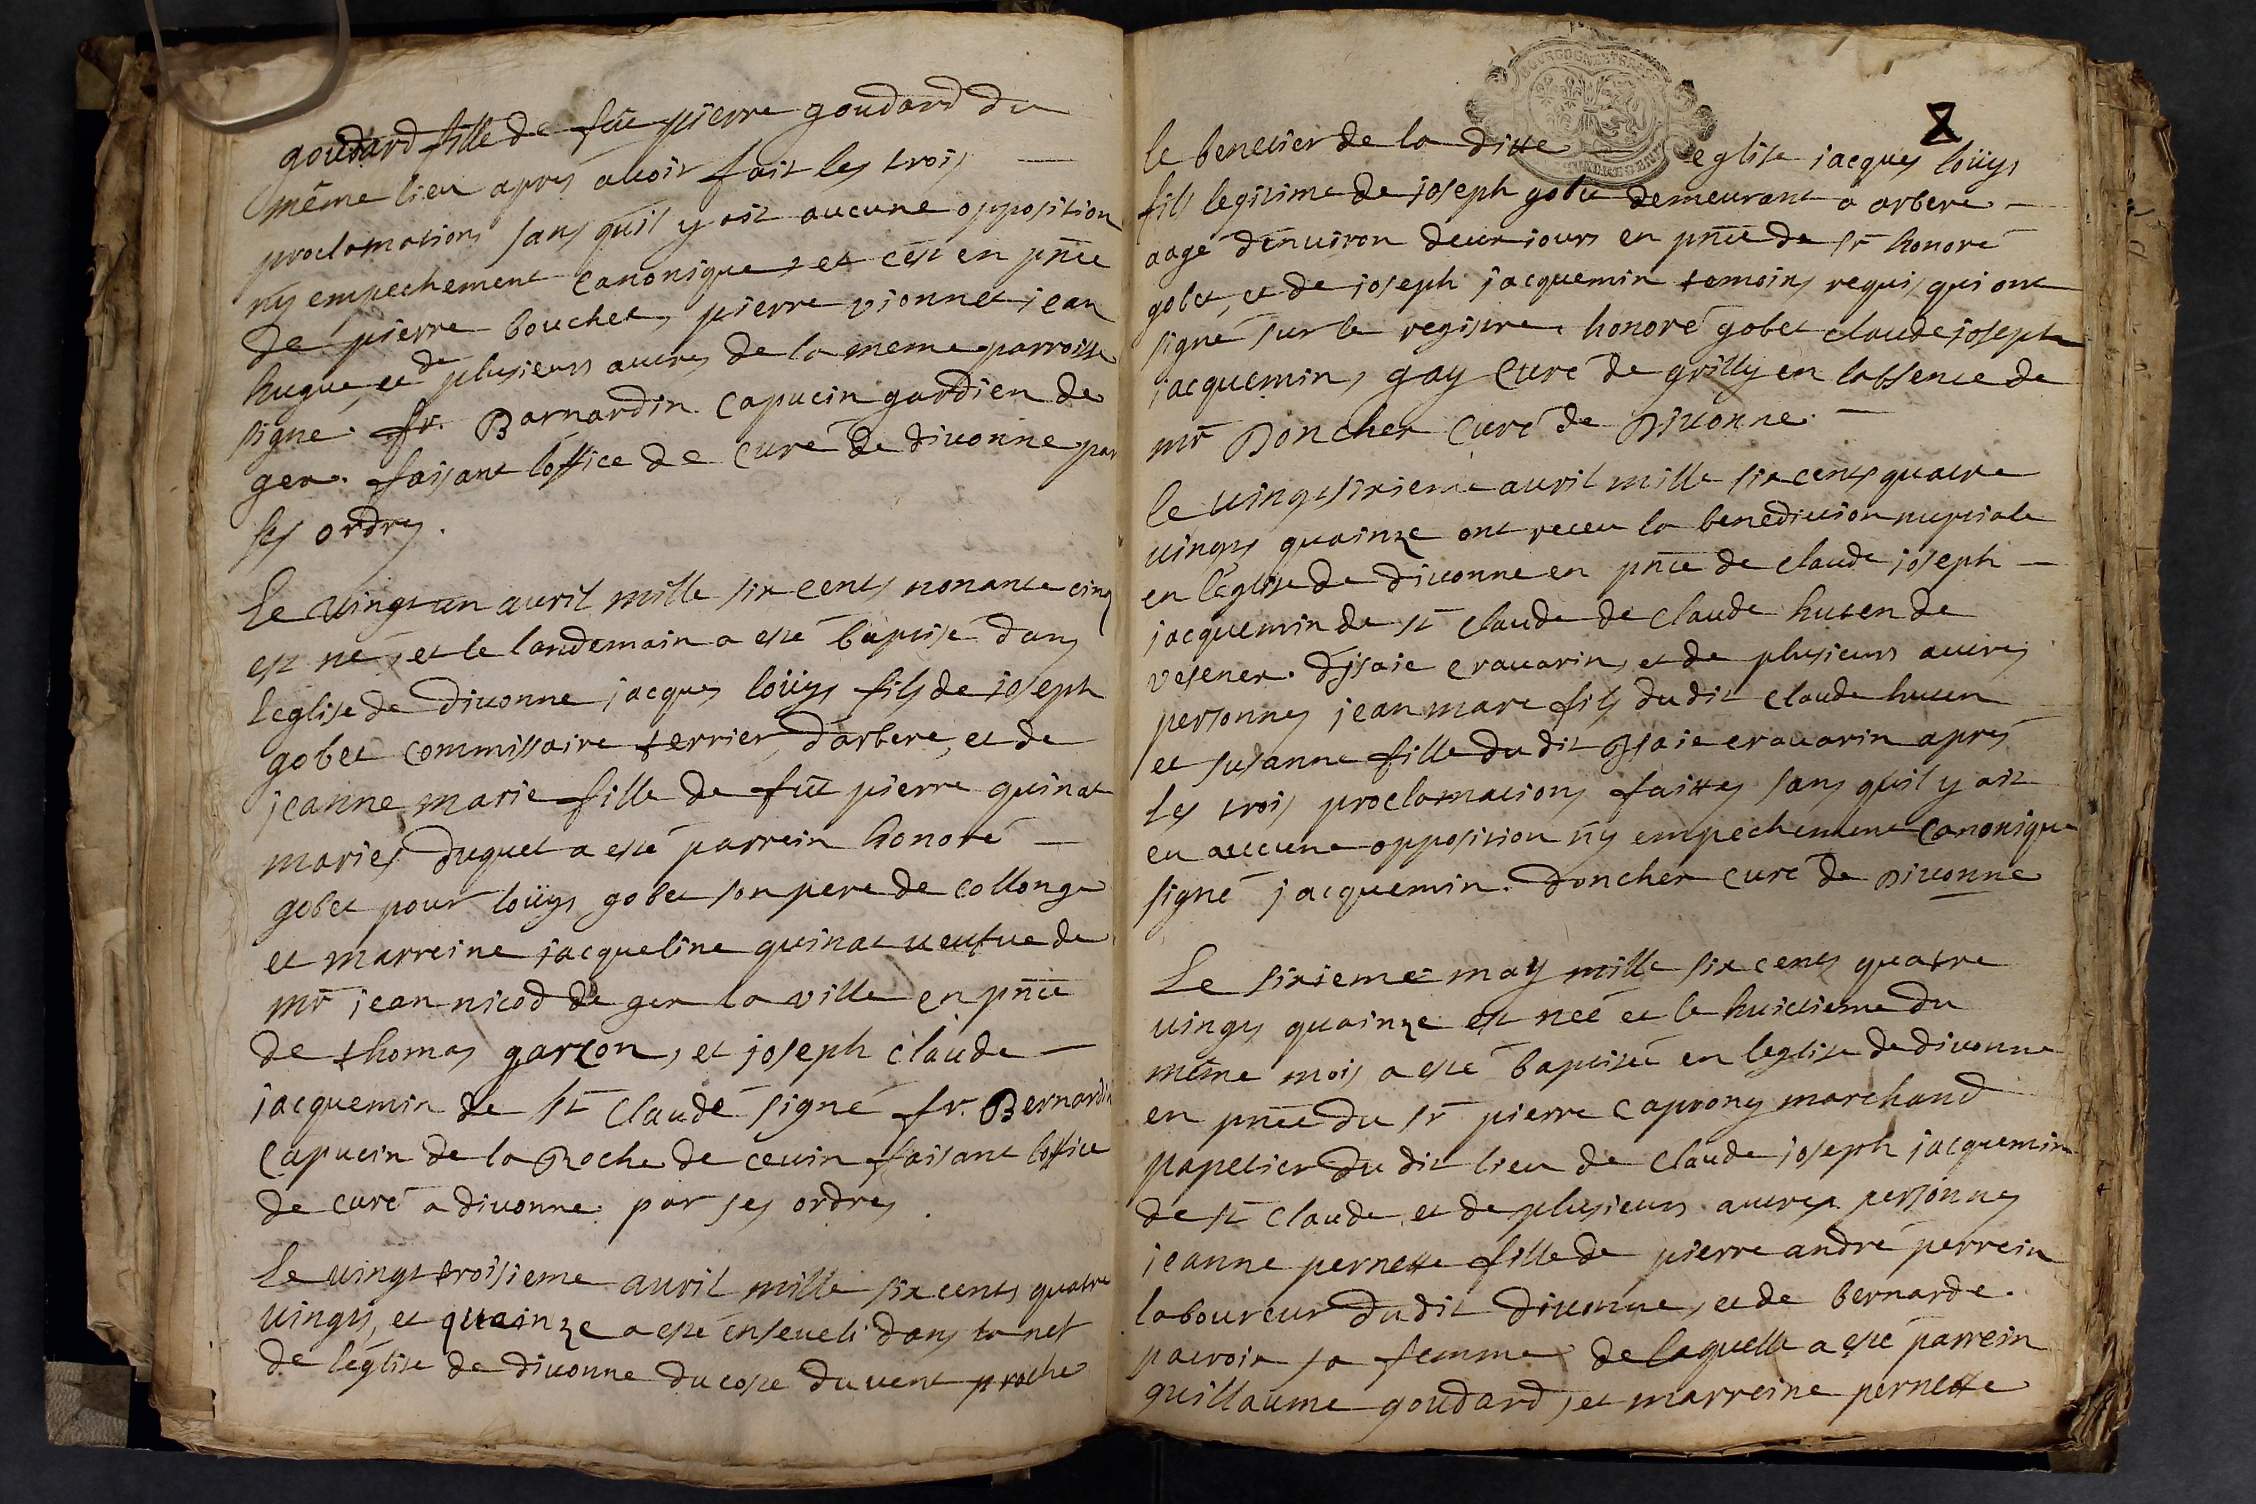 goudard fille de fût pierre goudard du
même lieu apres avoir fait les trois
proclamations sans qu'il y ait aucune opposition
ny empechement canonique, et c'est en pnce
de pierre bouchet, pierre vionnet jean
hugue, et de plusieurs autres de la meme parroisse
signé. fr. Barnardin capucin gardien de
gex. faisant l'office de curé de divonne par
ses ordres.
Le vingt un avril mille six cents nonante cinq
est né, et le landemain a esté baptisé dans
l'eglise de divonne jacques loüys fils de joseph
gobet commissaire terrier d'arbere, et de
jeanne marie fille de fût pierre quinat
mariés duquel a esté parrein honoré
gobet pour loüys gobet son pere de collonge
et marreine jacqueline quinat veufue de
mr jean nicod de gex la ville en pnce
de thomas garcon, et joseph claude
jacquemin de st Claude signé fr. Bernardin
Capucin de la Roche de faisant l'office
de curé a divonne par ses ordres.
Le vingt troisieme avril mille six cents quatre
vingts, et quainze a esté enseveli dans la nef
de l'église de divonne du costé du vent proche
BOURGOGNE ET BRESSE
8
le benetier de la ditte eglise jacques loüys
fils legitime de joseph gobet demeurant a arbere
aagé d'environ deux jours en pnce de sr honoré
gobet, et de joseph jacquemin temoins requis, qui ont
signé sur le registre. honoré gobet claude joseph
jacquemin, gay curé de grilly en l'absence de
mr Doncher curé de Divonne.
Le vingt sixieme avril mille six cents quatre
vingts quainze ont receu la benediction nuptiale
en l'église de divonne en pnce de claude joseph
jacquemin de st Claude de Claude huten de
vesenex. d'jsaie cravarin, et de plusieurs autres
personnes jean marc fils du dit Claude huten
et susanne fille du dit jsaie cravarin aprés
les trois proclamations faittes sans qu'il y ait
eu aucune opposition ny empechement canonique
signé jacquemin. Doncher curé de Divonne
Le sixieme may mille six cents quatre
vingts quainze est née et le huictieme du
même mois a esté baptisée en l'eglise de divonne
en pnce du sr pierre caprony marchand
papetier du dit lieu de Claude joseph jacquemin
de st Claude, et de plusieurs autres personnes
jeanne pernette fille de pierre andré perrein
laboureur du dit divonne, et de bernarde
patroix sa femme de laquelle a esté parrein
guillaume goudard, et marreine pernette